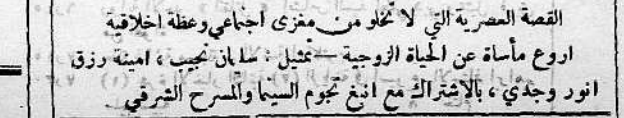 القصة العصرية التي لا تخلو من مغزى اجتماعي وعظة اخلاقية
اروع مأساة عن الحياة الزوجية — تمثيل : سليمان نجيب ، امينة رزق
انور وجدي ، بالاشتراك مع انبغ نجوم السينما والمسرح الشرقي